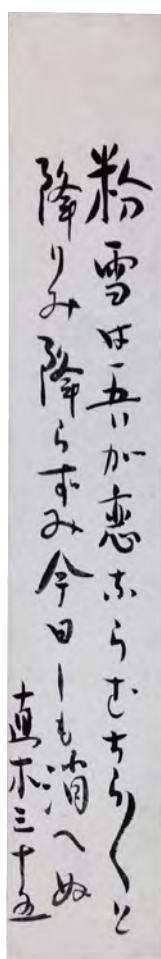 粉雪は吾が恋ならむちらちらと
降りみ降らずみ今日しも消へぬ
直木三十五